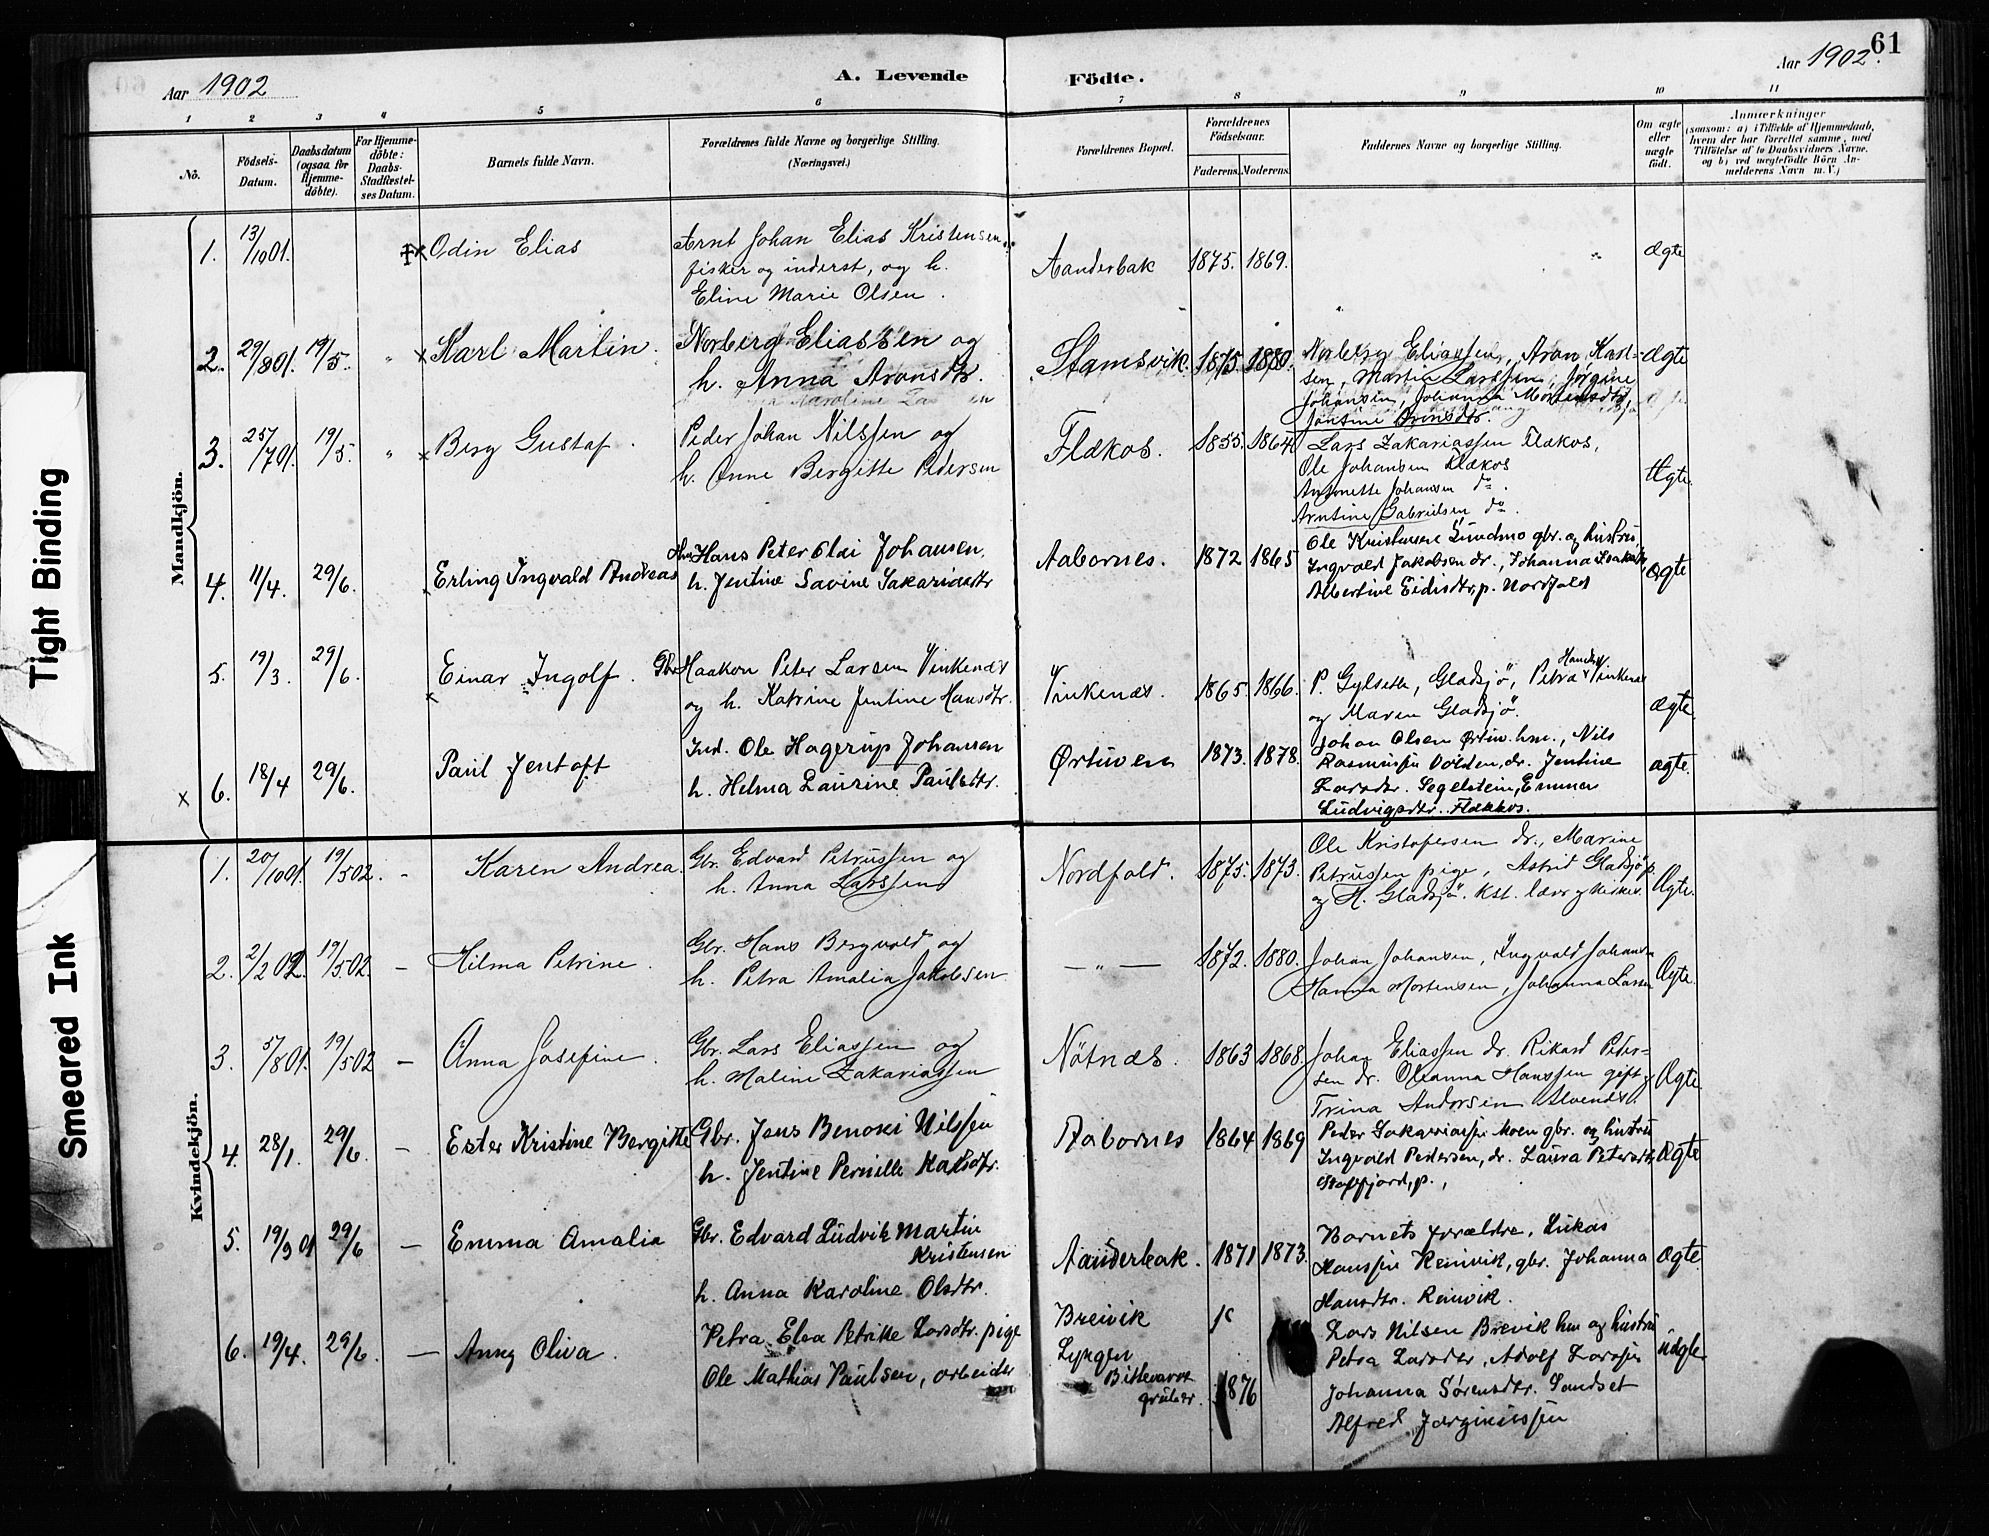 Aar 1902
A. Levende
Födte.
Aar 1902.
61
1 2 3 4 5 6 7 8 9 10 11
No.
Födsels-
Datum.
Daabsdatum
(ogsaa for
Hjemme-
döbte).
For Hjemme-
döbte:
Daabs-
Stadfæstel-
ses Datum.
Barnets fulde Navn.
Forældrenes fulde Navne og borgerlige Stilling.
(Næringsvei.)
Forældrenes Bopæl.
Forældrenes
Födselsaar.
Faderens. Moderens.
Faddernes Navne og borgerlige Stilling.
Om ægte
eller
uægte
födt.
Anmærkninger
(saasom: a) i Tilfælde af Hjemmedaab,
hvem der har forrettet samme, med
Tilföielse af to Daabsvidners Navne,
og b) ved uægtefödte Börn An-
melderens Navn m. V.)
Mandkjön.
1. 13/10 01. Odin Elias
Arnt Johan Elias Kristensen
fisker og inderst, og h.
Eline Marie Olsen.
Aanderbak 1875. 1869. Ægte
2. 29/8 01. 19/5. " x Karl Martin.
Norberg Eliassen og
h. Anna Aronsdtr.
Stamsvik. 1875. 1880.
Norberg Eliassen, Aron Karl-
sen, Martin Larssen, Jørgine
Johansen, Johanna Mortensdtr,
Jentine Aronsdtr.
Ægte
3. 25/7 01. 19/5. " x Berg Gustaf.
Peder Johan Nilssen og
h. Anne Bergitte Pedersen
Flækos. 1855. 1864
Lars Zakariassen Flækos,
Ole Johansen Flækos
Antonette Johansen do.
Arntine Gabrielsen do.
Ægte.
4. 11/4. 29/6. Erling Ingvald Andreas
Hans Peter Olai Johansen,
h. Jentine Savine Sakariasdtr
Aabornes. 1872 1865
Ole Kristensen Sundmo gbr. og hustru,
Ingvald Jakobsen dr., Johanna
Albertine Eidisdtr, p. Nordfold
ægte
5. 19/3. 29/6. x Einar Ingolf.
Gbr. Haakon Peter Larsen Vinkenes
og h. Katrine Jentine Hansdtr.
Vinkenæs. 1865. 1866.
P. Gylseth, Gladsjö, Petra Vinkenes
og Maren Gladsjö.
ægte.
x 6. 18/4 29/6. Paul Jentoft
Ind. Ole Hagerup Johansen
h. Helma Laurine Paulsdtr.
Ørtuven 1873. 1878.
Johan Olsen Ørtuv. hm., Nils
Rasmussen Volden, dr. Jentine
Larsdtr. Segelstein, Emma
Ludvigsdtr. Flækkos.
ægte.
Kvindekjön.
1. 20/10 01. 19/5 02. - Karen Andrea.
Gbr. Edvard Petrussen og
h. Anna Larssen
Nordfold. 1875. 1873.
Ole Kristofersen dr., Marine
Petrussen pige, Astrid Gladsjö p.
og H. Gladsjö. Kst. lærer
Ægte.
2. 2/2 02. 19/5 02. - Hilma Petrine.
Gbr. Hans Bergvald og
h. Petra Amalia Jakobsen.
— " — 1872. 1880.
Johan Johansen, Ingvald Johansen
Hanna Mortensen, Johanna Larsen
Ægte.
3. 5/8 01. 19/5 02 - Anna Josefine.
Gbr. Lars Eliassen og
h. Maline Zakariassen
Nötnæs. 1863 1868.
Johan Eliassen dr. Rikard Peder-
sen dr. Oleanna Hanssen gift,
Trina Andorsen
Ægte
4. 28/1. 29/6. - Ester Kristine Bergitte
Gbr. Jens Benoni Nilssen
h. Jentine Pernille
Aabornes 1864 1869
Peder Sakariassen Moen gbr. og hustru
Ingvald Pedersen, dr. Laura Petersdtr,
p.,
Ægte
5. 19/9 01 29/6 - Emma Amalia
Gbr. Edvard Ludvik Martin
Kristensen
h. Anna Karoline Olsdtr.
Aanderbak. 1871 1873.
Barnets forældre, Lukas
Hanssen Reinvik, gbr. Johanna
Hansdtr. Reinvik.
ægte
6. 19/4. 29/6. - Anny Oliva.
Petra Elea Petrikke Larsdtr. pige
Ole Mathias Paulsen, arbeider
Breivik
Lyngen
gruber. 1876
Lars Nilsen Brevik hm og hustru
Petra Larsdtr, Adolf Larssen
Johanna Sørensdtr. Sandset
Alfred Jørginussen
uægte
Tight Binding
Smeared Ink